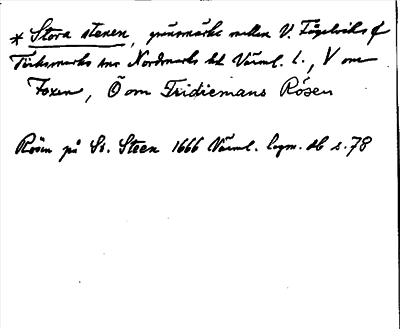 * Stora stenen, gränsmärke mellan V. Fågelviks o
Töcksmarks snr Nordmarks hd Värml. l., V om
Foxen, Ö om Fridiemans Rösen
Rösen på St. Steen 1666 Värml. lagm. db s. 78